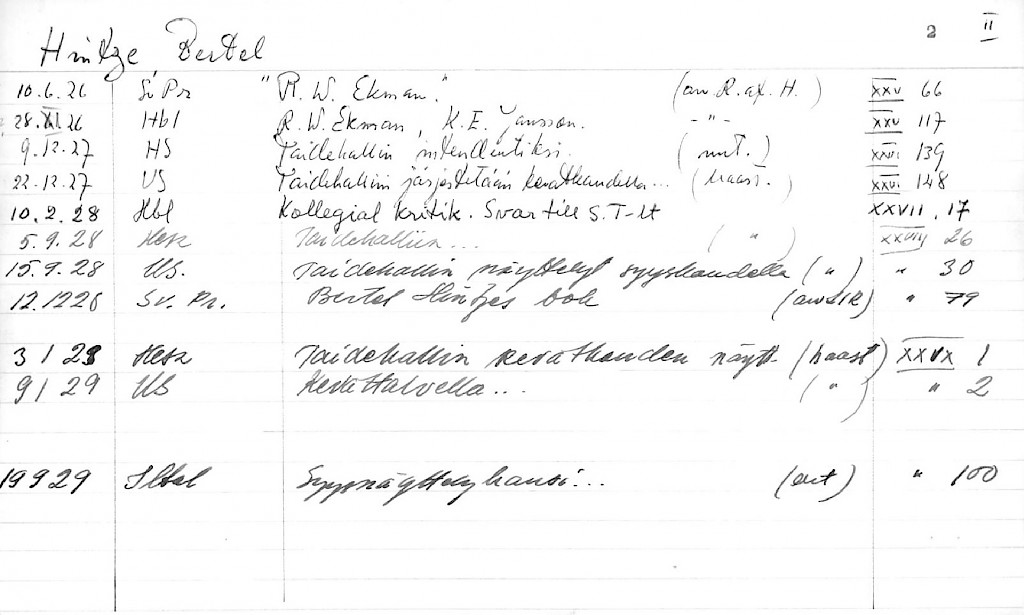 2 II
Hintze, Bertel
10.6.26 Sv Pr "R. W. Ekman." (anm R. af. H.) XXV 66
28.XI.26 Hbl R. W. Ekman, K. E. Jansson. -"- XXV 117
9.12.27 HS Taidehallin intendentiksi. (nimit.) XXVI 139
22.12.27 US Taidehallin järjestetään kevätkaudella... (haast.) XXVI 148
10.2.28 Hbl Kollegial kritik. Svar till S.T-lt XXVII, 17
5.9.28 Taidehalliin... ( " ) XXVIII 26
15.9.28 US. Taidehallin näyttelyt syyskaudella ( " ) " 30
12.12 28 Sv. Pr. Bertel Hintzes bok " 79
3 1 29 Taidehallin kevätkauden näytt. (haast) XXVX 1
9 1 29 US Keskitalvella... ( " ) " 2
19 9 29 Syysnäyttelykausi... " 100